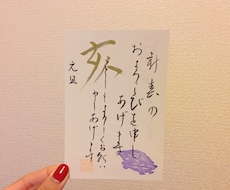 新春の
およろこびを申し
あげます
亥
本年もよろしくお願い
申しあげます
元旦